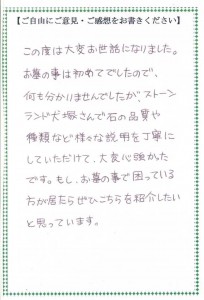 【ご自由にご意見・ご感想をお書きください】
この度は大変お世話になりました。
お墓の事は初めてでしたので、
何も分かりませんでしたが、ストーン
ランド犬塚さんで石の品質や
種類など様々な説明を丁寧に
していただけて、大変心強かた
です。もし、お墓の事で困っている
方が居たらぜひこちらを紹介したい
と思っています。